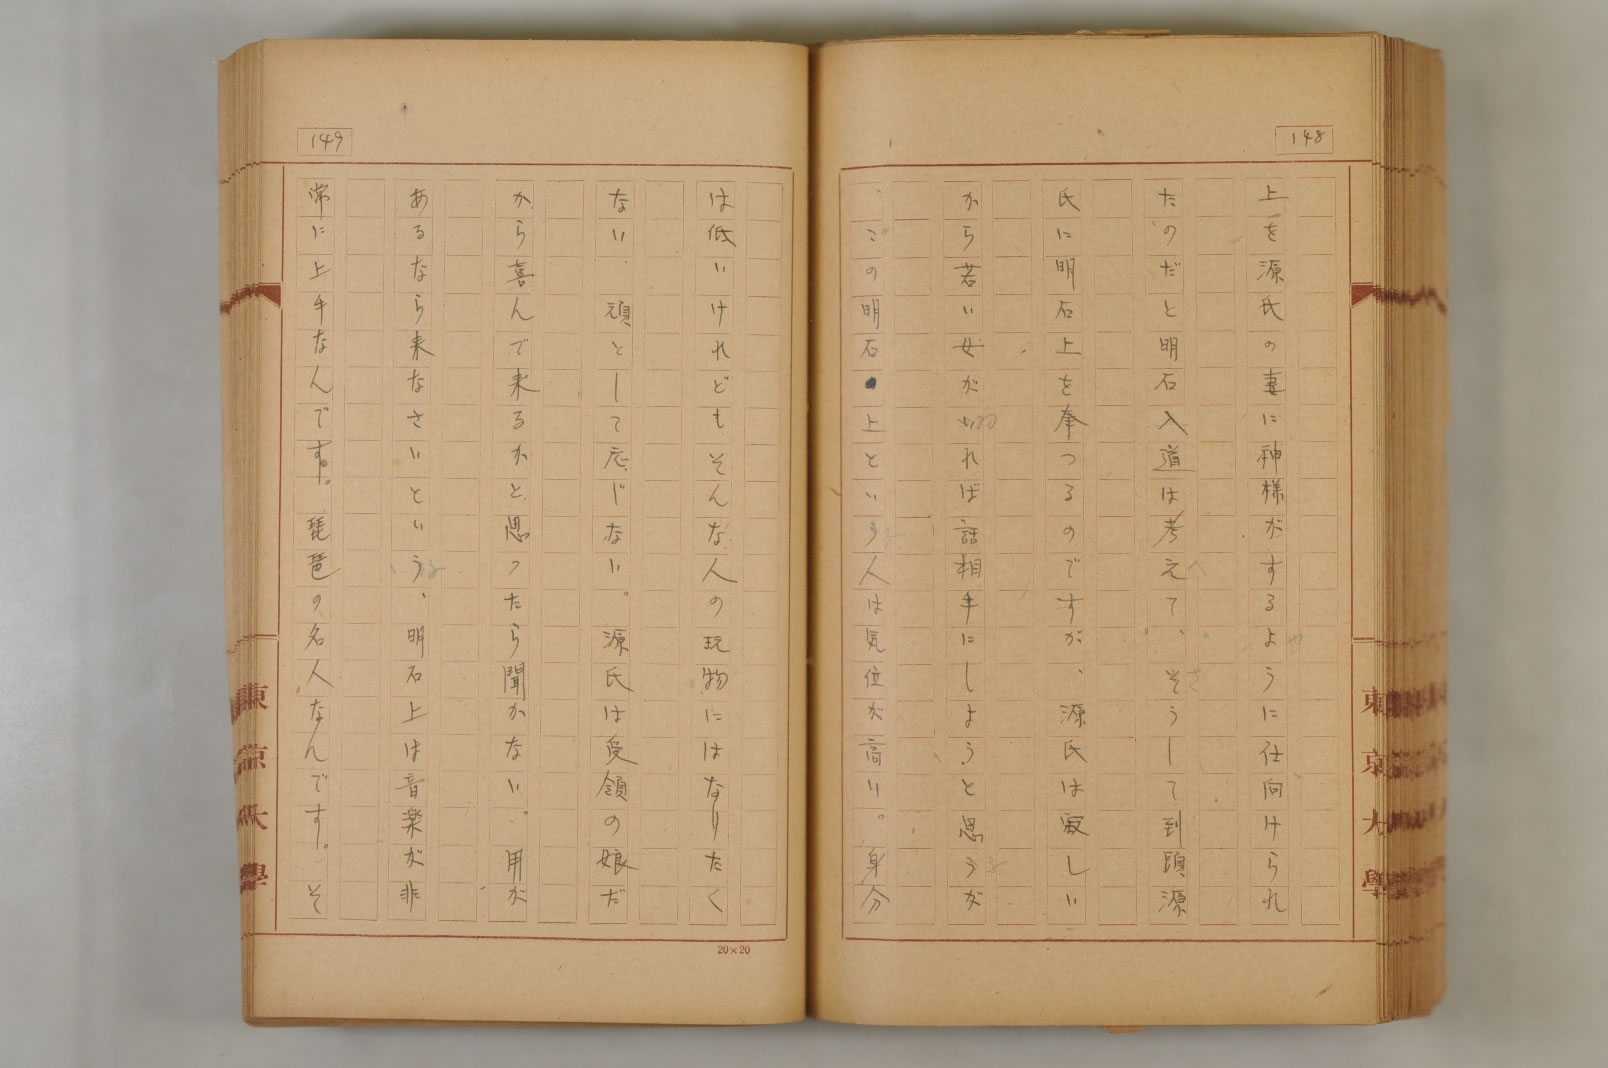 148
上を源氏の妻に神様がするように仕向けられ
たのだと明石入道は考えて、そうして到頭源
氏に明石上を奉つるのですが、源氏は寂しい
から若い女が れば話相手にしようと思うが
、この明石上という人は気位が高い。身分
149
は低いけれどもそんな人の玩物にはなりたく
ない。頑として応じない。源氏は受領の娘だ
から喜んで来るかと思ったら聞かない。用が
あるなら来なさいという、明石上は音楽が非
常に上手なんです。琵琶の名人なんです。そ
20×20
東京大學
東京大學